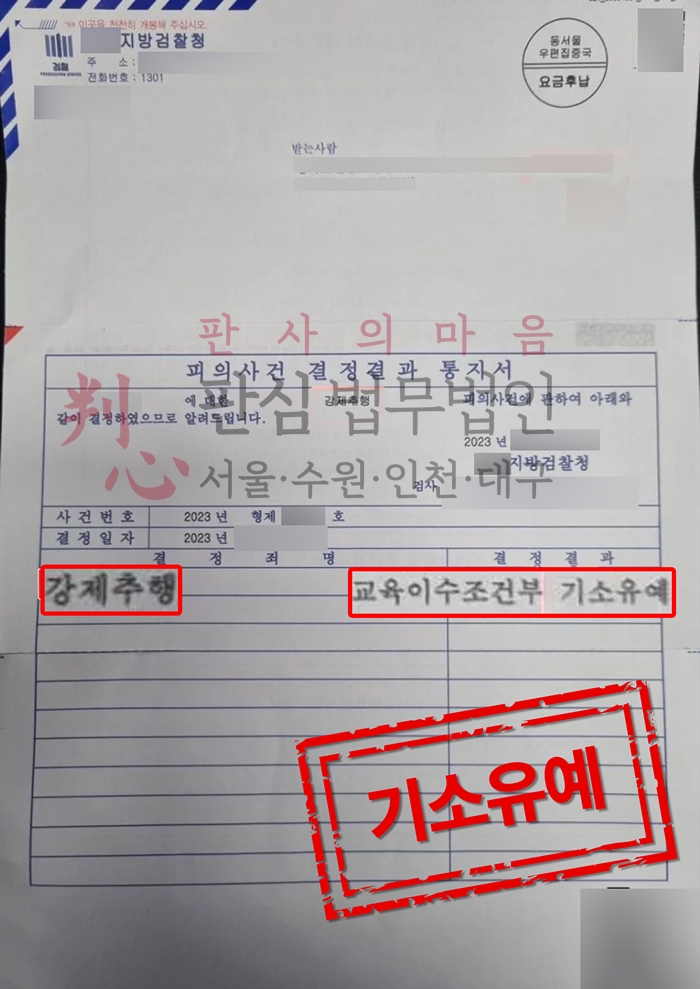 이곳을 천천히 개봉해 주십시오.
지방검찰청
검찰
PROSECUTION SERVICE
주 소 :
전화번호 : 1301
동서울
우편집중국
요금후납
받는사람
판사의마음
피의사건 결정결과 통지서
에 대한 강제추행 피의사건에 관하여 아래와
같이 결정하였으므로 알려드립니다.
判心
판심법무법인
서울·수원·인천·대구
2023 년
지방검찰청
검사
사건번호 2023 년 형제 호
결정일자 2023 년
결정죄명 결정결과
강제추행 교육이수조건부 기소유예
기소유예